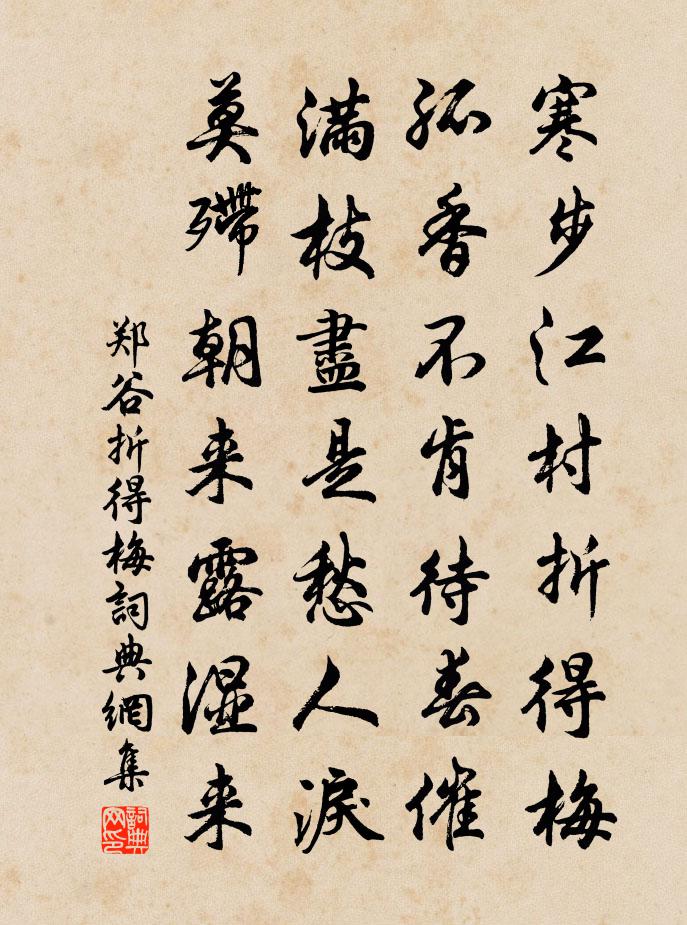 寒步江村折得梅
孤香不肯待春催
滿枝盡是愁人淚
莫殢朝来露湿来
郑谷折得梅詞典網集
詞典网印